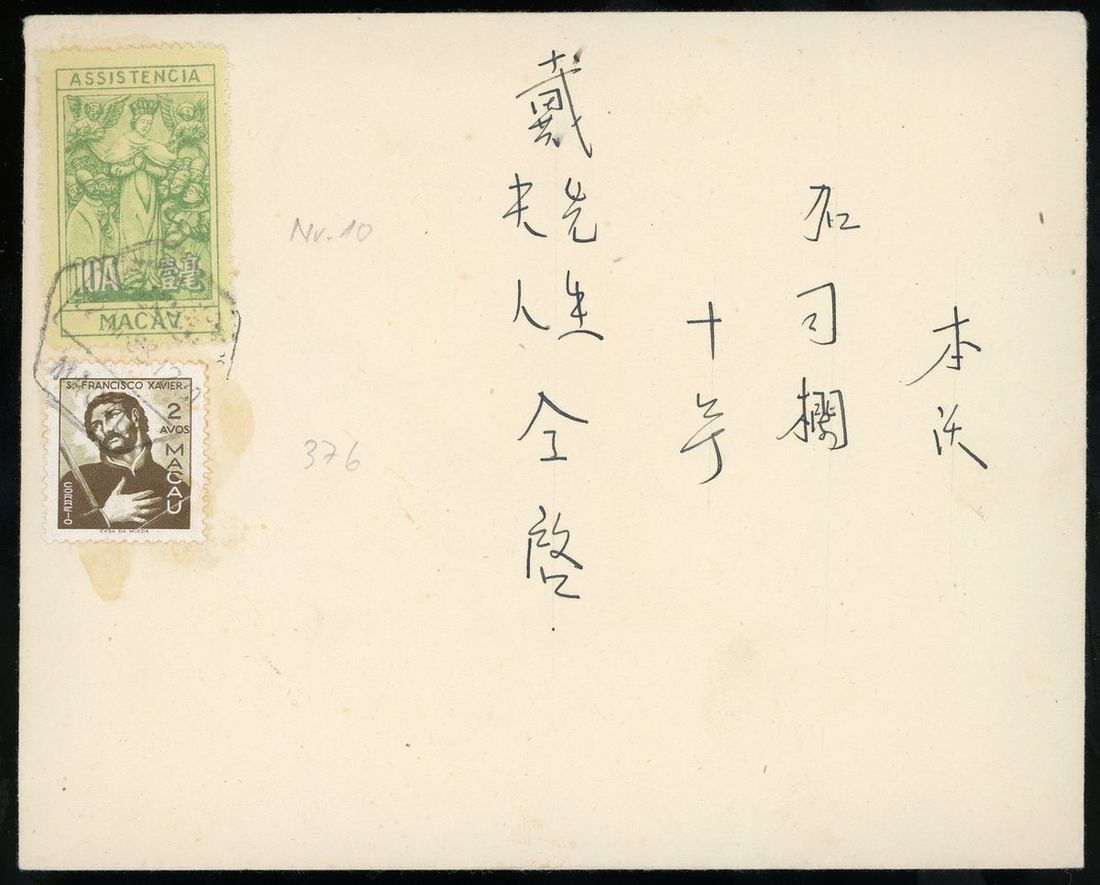 本沃
加司欄
十号
戴先生
夫人
仝啓
ASSISTENCIA
10A 壹毫
MACAV
S. FRANCISCO XAVIER
2
AVOS
MACAU
CORREIO
CASA DA MOEDA
Nr. 10
376